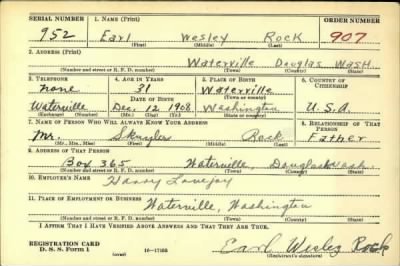 SERIAL NUMBER 1. NAME (Print) ORDER NUMBER
952 Earl Wesley Rock 907
(First) (Middle) (Last)
2. ADDRESS (Print)
Waterville Douglas Wash
(Number and street or R. F. D. number) (Town) (County) (State)
3. TELEPHONE 4. AGE IN YEARS 5. PLACE OF BIRTH 6. COUNTRY OF CITIZENSHIP
none 31 Waterville
DATE OF BIRTH (Town or county)
Waterville Dec. 12 1908 Washington U.S.A.
(Exchange) (Number) (Mo.) (Day) (Yr.) (State or country)
7. NAME OF PERSON WHO WILL ALWAYS KNOW YOUR ADDRESS 8. RELATIONSHIP OF THAT PERSON
Mr. Rock Father
(Mr., Mrs., Miss) (First) (Middle) (Last)
9. ADDRESS OF THAT PERSON
Box 365 Waterville, Douglas Wash.
(Number and street or R. F. D. number) (Town) (County) (State)
10. EMPLOYER'S NAME
Harry Lovejoy
11. PLACE OF EMPLOYMENT OR BUSINESS
Waterville, Washington
(Number and street or R. F. D. number) (Town) (County) (State)
I AFFIRM THAT I HAVE VERIFIED ABOVE ANSWERS AND THAT THEY ARE TRUE.
REGISTRATION CARD
D. S. S. Form 1 (over) 16—17105 Earl Wesley Rock
(Registrant's signature)